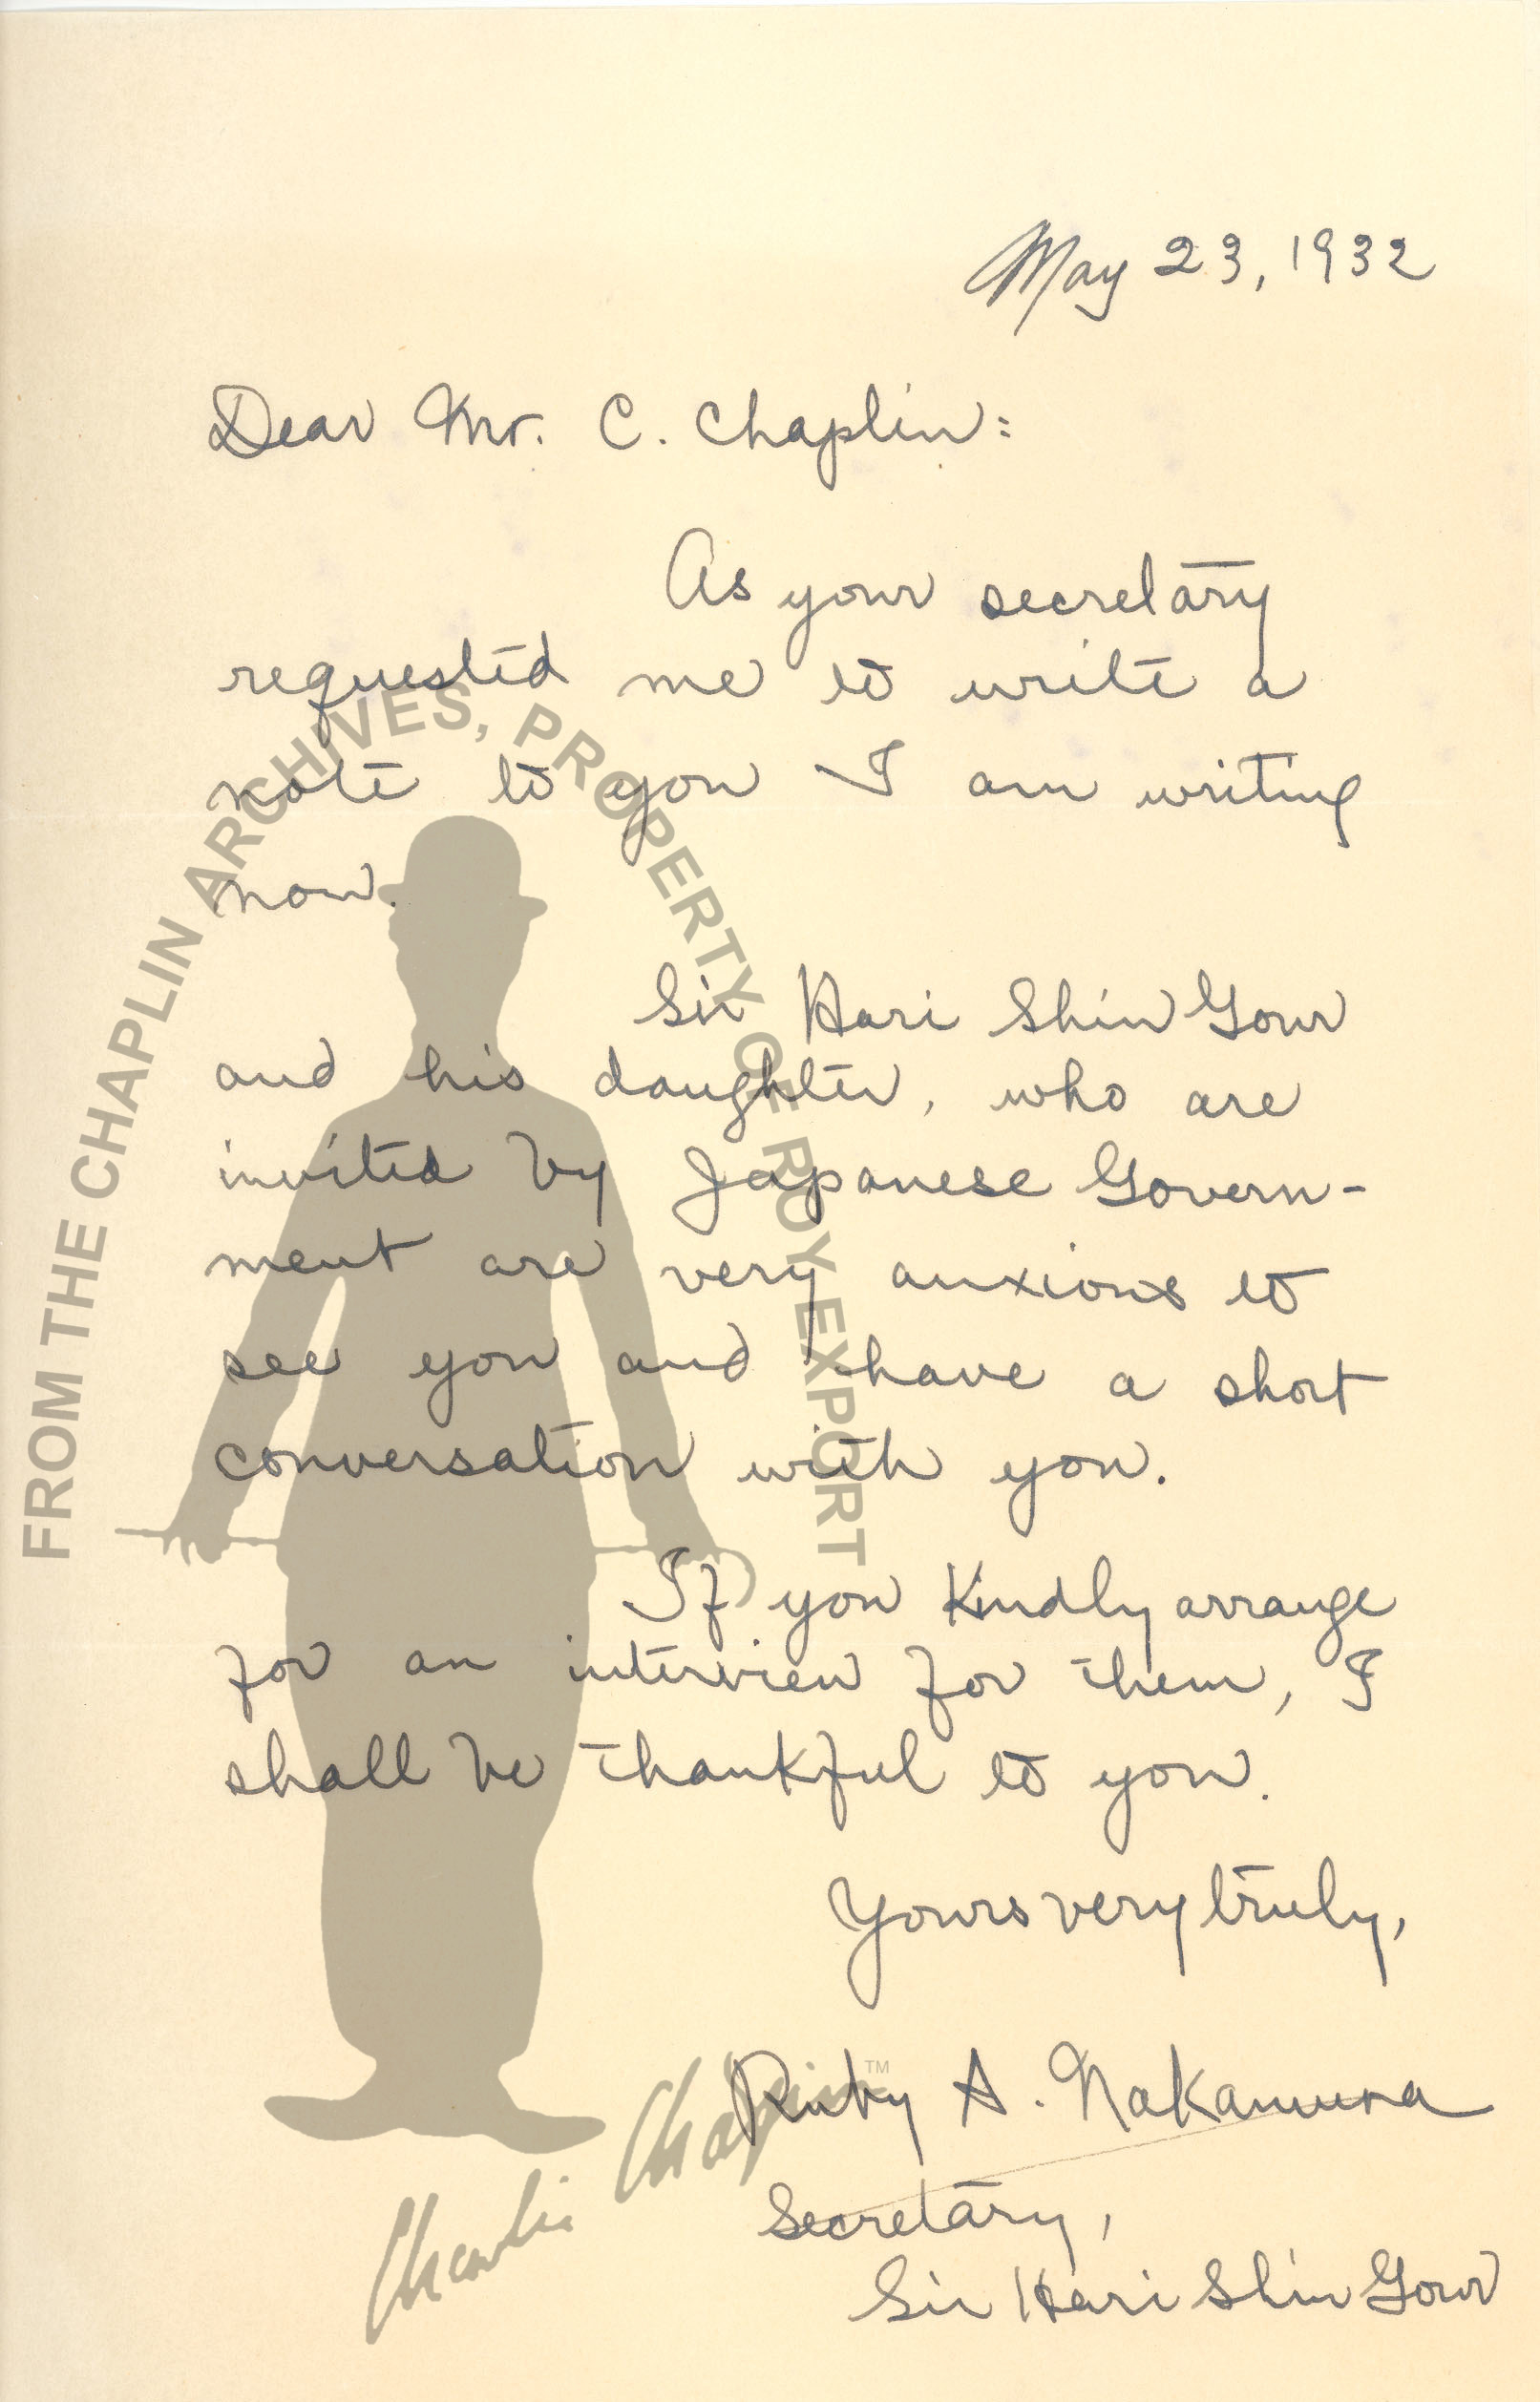 May 23, 1932
Dear Mr. C. Chaplin:
As your secretary
requested me to write a
note to you I am writing
now.
Sir Hari Shin Gour
and his daughter, who are
invited by Japanese Govern-
ment are very anxious to
see you and have a short
conversation with you.
If you kindly arrange
for an interview for them, I
shall be thankful to you.
Yours very truly,
Ruby A. Nakamura
Secretary,
Sir Hari Shin Gour
FROM THE CHAPLIN ARCHIVES, PROPERTY OF ROY EXPORT
Charlie Chaplin™